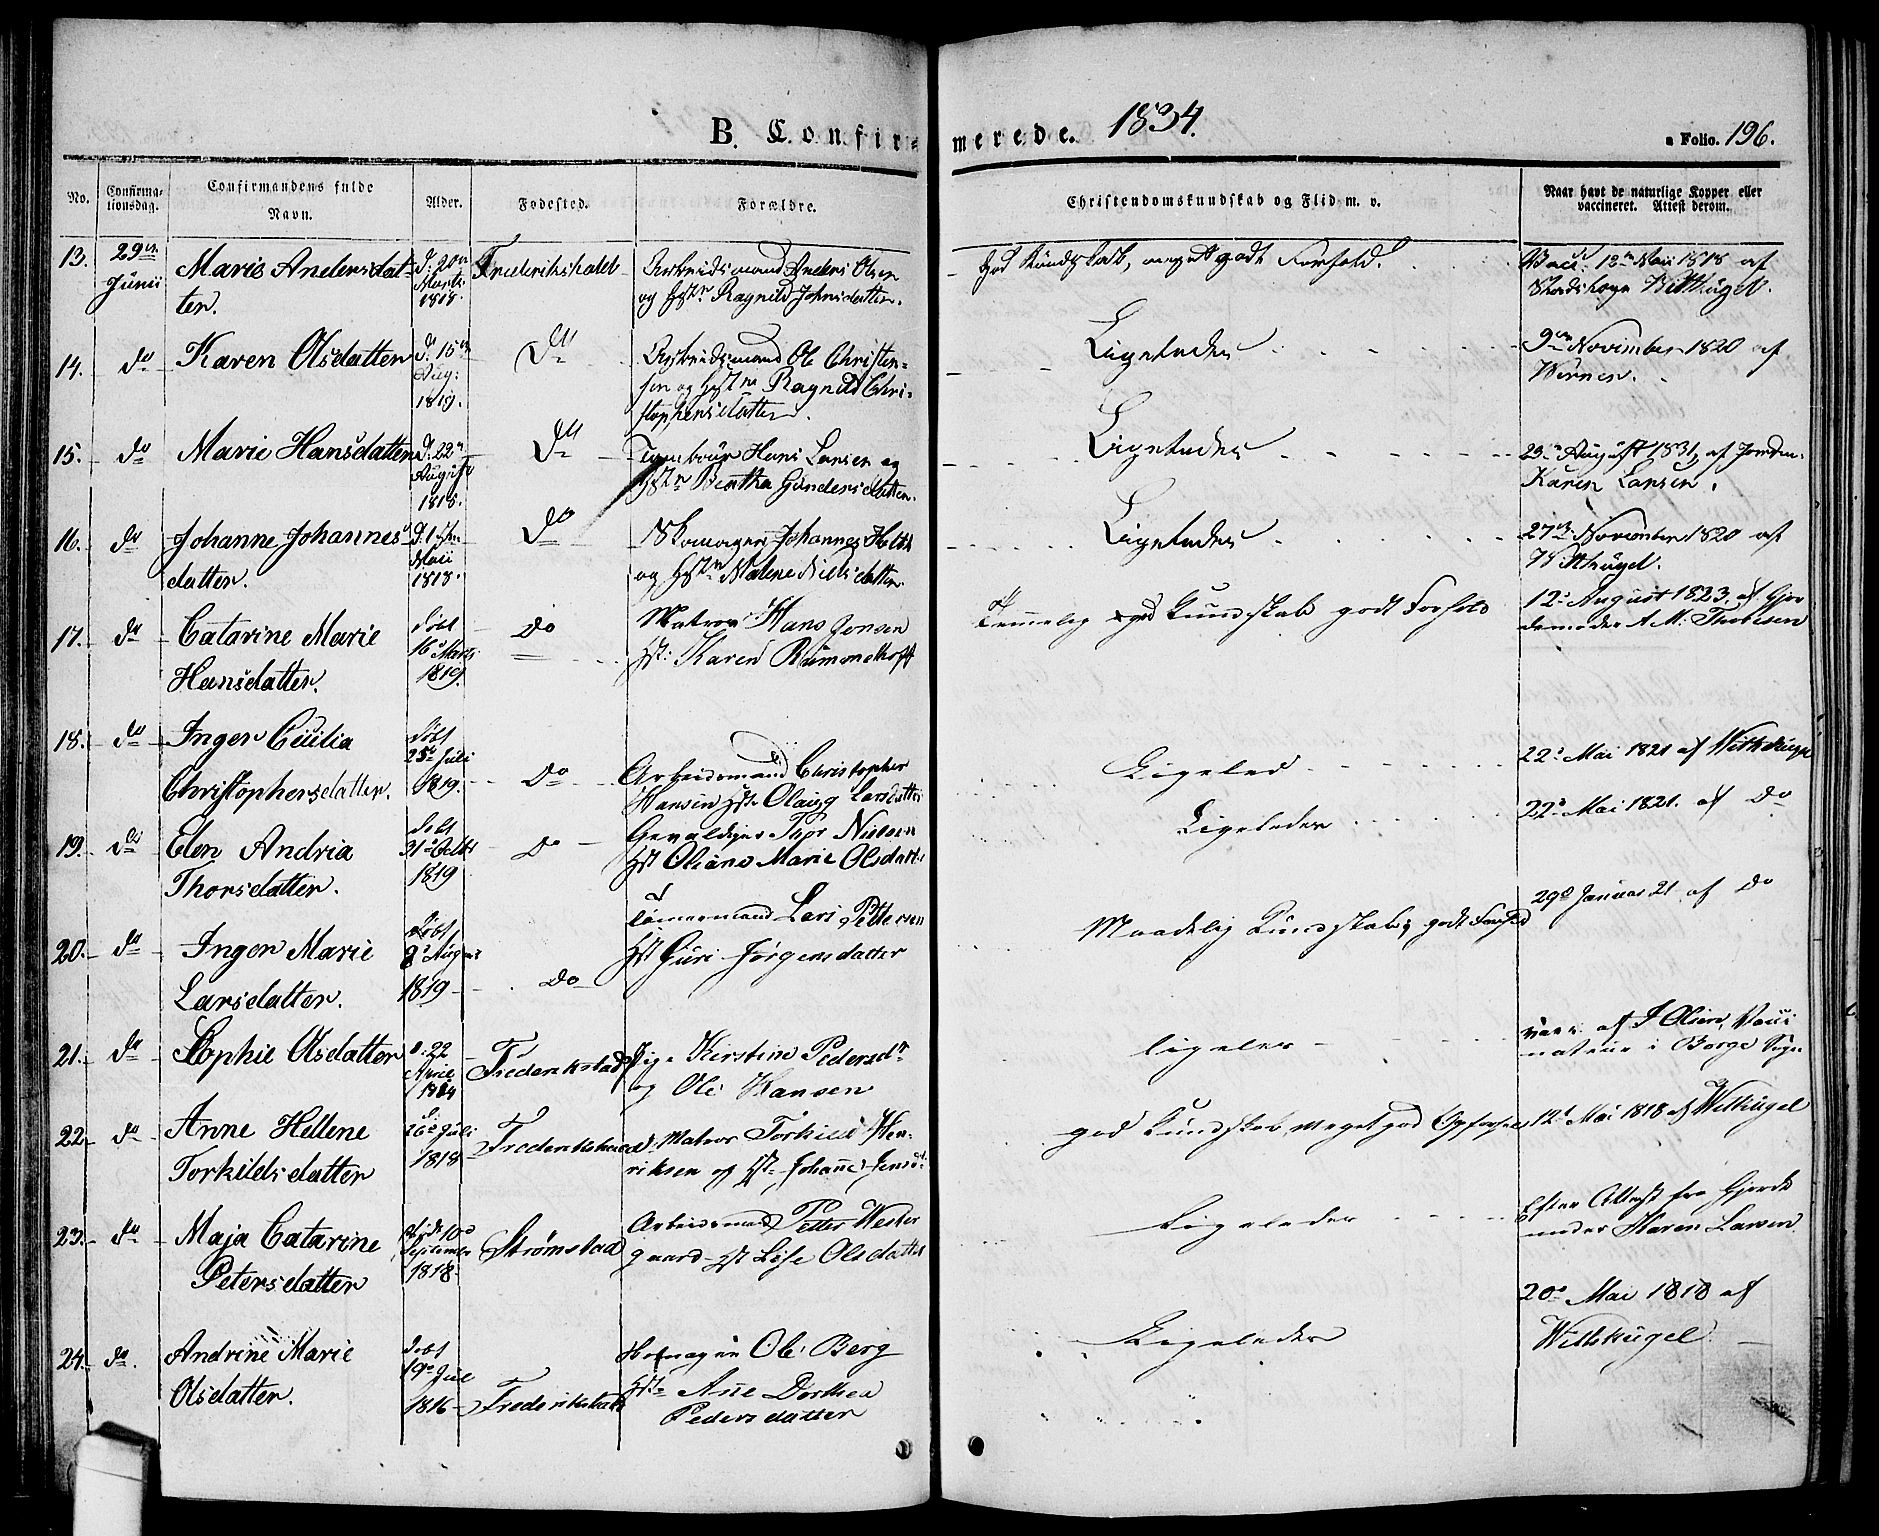 B. Confir=
merede. 1834.
Folio. 196.
No. Confirma-tionsdag. Confirmandens fulde Navn. Alder. Fodested. Forældre. Christendomskundskab og Flid m. v. Naar havt de naturlige Kopper eller vaccineret. Attest derom.
13. 29 Junii Marie Andersdat-
ter. d. 20 Marts 1818. Frederikshald Arbeidsmand Anders Olsen
og Hst Ragnild Johnsdatter.
God Kundskab, meget godt Forhold. Vacc. 12 Mai 1818 af
Withügel.
14. do Karen Olsdatter d. 15 Aug: 1819. do Arbeidsmand Ole Christen-
sen og Hst Ragnild Chri-
stophersdatter.
Ligeledes 9 November 1820 af
15. do Marie Hansdatter d. 22 August 1818. do Tambour Hans Larsen og
Hst Beatha Gundersdatter.
Ligeledes 23 August 1831, af Jordm.
Karen Larsen.
16. do Johanne Johannes-
datter. d. Maii 1818. do Skomager Johannes Holt
og Hst Malene Nielsdatter.
Ligeledes 27 November 1820 af
Withügel.
17. do Catarine Marie
Hansdatter. døbt 16 Marts 1819. do Matros Hans Jensen
Hst: Karen Rummelhoff
Temmelig god Kundskab godt Forhold 12 August 1823. af Gjor
demoder A. M. Thobesen
18. do Inger Cicilia
Christophersdatter. døbt 25 Juli 1819. Do Arbeidsmand Christopher
Hansen Hst Olaug Larsdatter
Ligeled 22 Mai 1821 af Withkügel
19. do Elen Andria
Thorsdatter. døbt 31 Octbr 1819 Do Gevaldiger Thor Nielsen
Hst Oliane Marie Olsdatter
Ligeledes 22 Mai 1821. af Do
20. do Inger Marie
Larsdatter. Døbt 8 August 1819 Do Tømermand Lars Pettersen
Hst Guri Jørgensdatter
Maadelig Kundskab, godt Forhold 29 Januar 21 af Do
21. do Sophie Olsdatter d. 22 Frederikstad Pige Kirstine Pedersdr
og Ole Hansen
ligeles vacc. af J Olsen, Vacci
nateur i Borge Sogn
22. do Anne Hellene
Torkildsdatter 26 Juli 1818 Frederikshald Matros Torkild Hen-
riksen og Hst Johanne Jensd
god Kundskab, meget god Opførsel 12 Mai 1818 af Withügel
23. do Maja Catarine
Petersdatter født 10 September 1818. Strømstad Arbeidsmand Petter Wester
gaard Hst Lise Olsdatter
Ligeledes Efter Attest fra Gjorde
moder Karen Larsen
24. do. Andrine Marie
Olsdatter. døbt 19 Jul 1816 Frederikstad Ole Berg
Hst Ane Dorthea
Pedersdatter
Ligeledes 20 Mai 1818 af
Withkügel